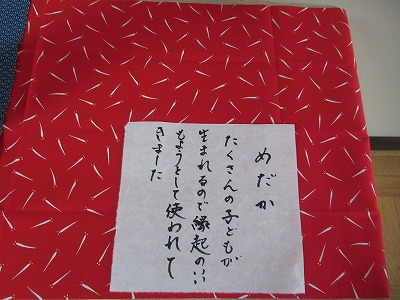 めだか
たくさんの子どもが
生まれるので縁起のいい
もようとして使われて
きました